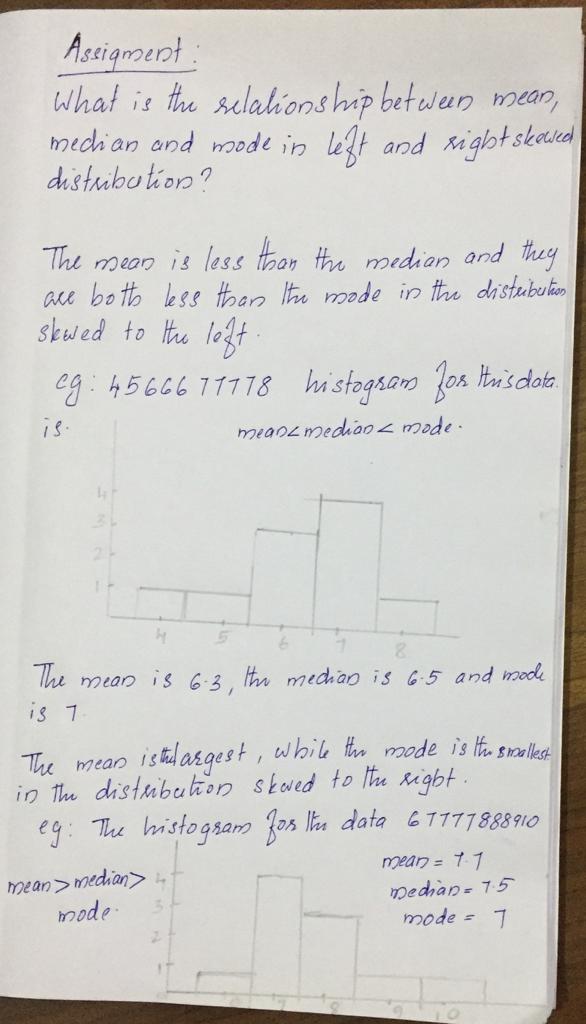 Assigment :
What is the relationship between mean,
median and mode in left and right skewed
distribution?
The mean is less than the median and they
are both less than the mode in the distribution
skewed to the left.
eg: 4566677778 histogram for this data
is.
mean<median< mode.
4
3
2
1
4 5 6 7 8
The mean is 6.3, the median is 6.5 and mode
is 7.
The mean is the largest, while the mode is the smallest
in the distribution skewed to the right.
eg: The histogram for the data 67777888910
mean = 7.7
mean>median> median = 7.5
mode. mode = 7
4
3
2
1
6 7 8 9 10